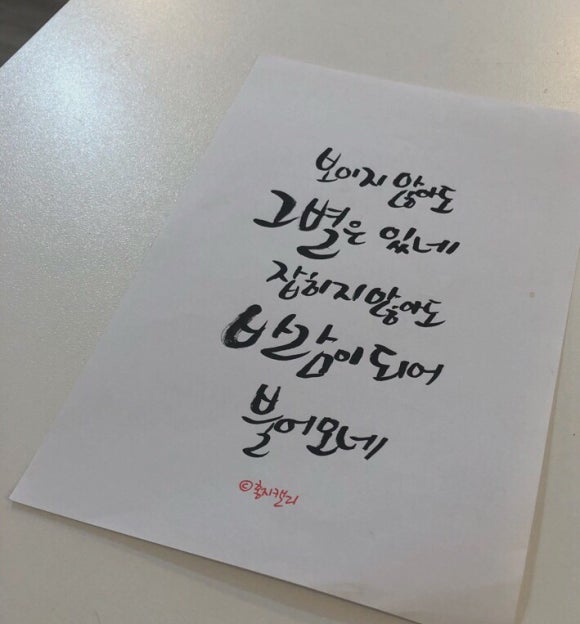 보이지 않아도
그별은 있네
잡히지 않아도
바람이 되어
불어오네
©홍시캘리